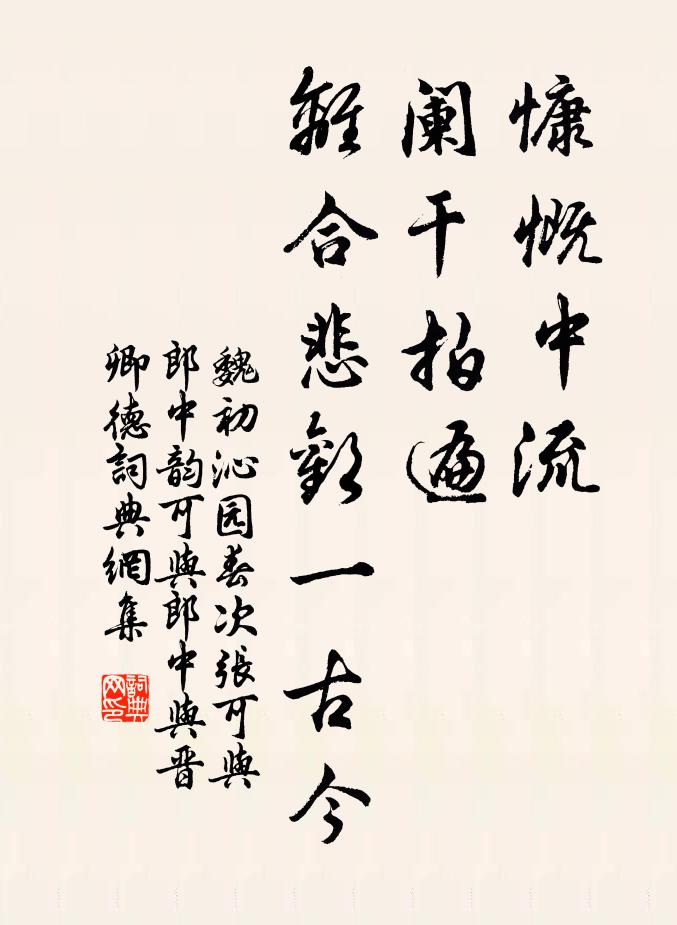 慷慨中流
阑干拍遍
離合悲歡一古今
魏初沁园春次張可與
郎中韵可與郎中與晋
卿德詞典網集
詞典网印